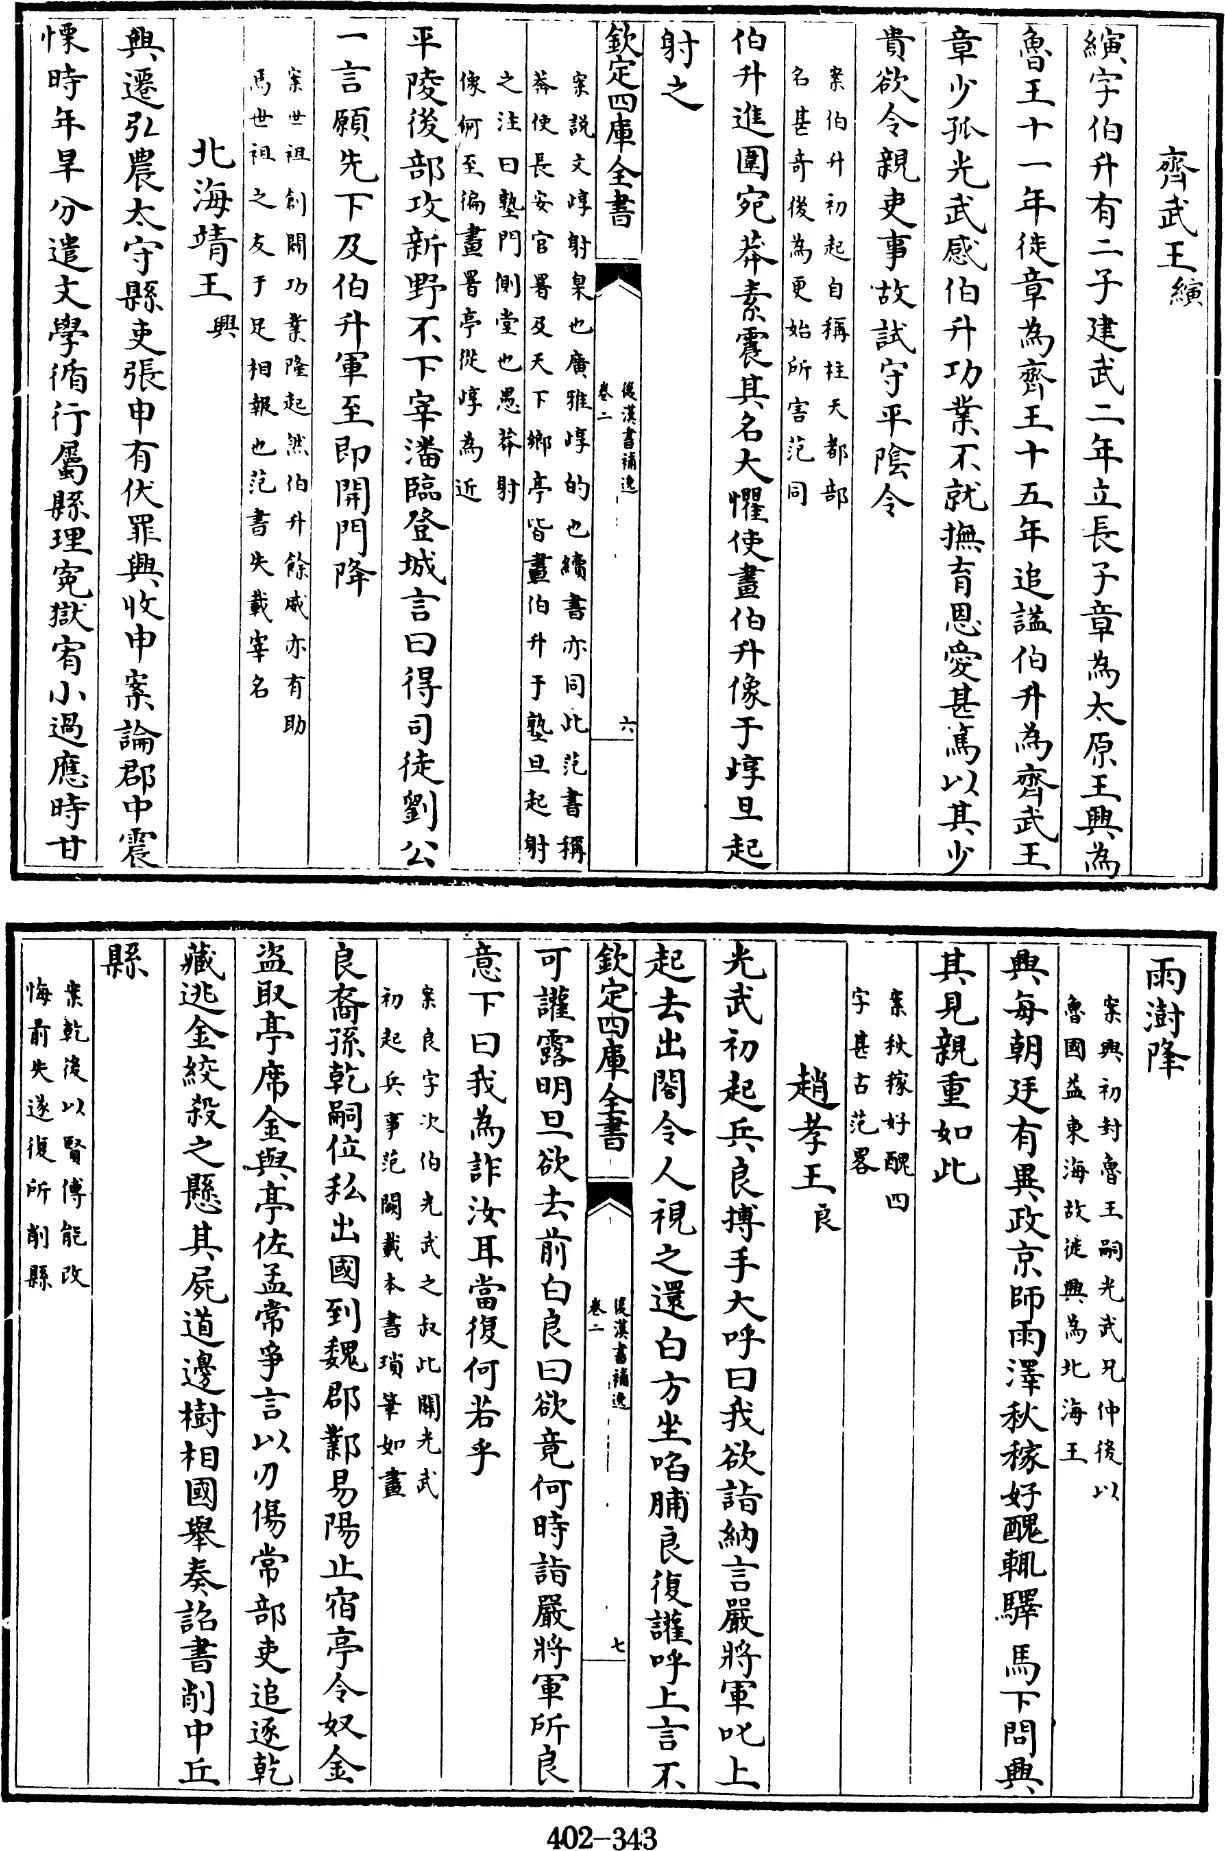 齊武王縯
縯字伯升有二子建武二年立長子章為太原王興為
魯王十一年徙章為齊王十五年追諡伯升為齊武王
章少孤光武感伯升功業不就撫育恩愛甚篤以其少
貴欲令親吏事故試守平陰令
案伯升初起自稱柱天都部
名甚奇後為更始所害范同
伯升進圍宛莽素震其名大懼使畫伯升像于埻旦起
射之
欽定四庫全書
後漢書補逸
卷二
六
案說文埻射臬也廣雅埻的也續書亦同此范書稱
莽使長安官署及天下鄉亭皆畫伯升于塾旦起射
之注曰塾門側堂也愚莽射
像何至徧畫署亭從埻為近
平陵後部攻新野不下宰潘臨登城言曰得司徒劉公
一言願先下及伯升軍至即開門降
案世祖創闢功業隆起然伯升餘威亦有助
焉世祖之友于足相報也范書失載宰名
北海靖王興
興遷弘農太守縣吏張申有伏罪興收申案論郡中震
慄時年旱分遣文學循行屬縣理寃獄宥小過應時甘
雨澍降
案興初封魯王嗣光武兄仲後以
魯國益東海故徙興為北海王
興每朝廷有異政京師雨澤秋稼好醜輒驛馬下問興
其見親重如此
案秋稼好醜四
字甚古范畧
趙孝王良
光武初起兵良搏手大呼曰我欲詣納言嚴將軍叱上
起去出閤令人視之還白方坐啗脯良復讙呼上言不
欽定四庫全書
後漢書補逸
卷二
七
可讙露明旦欲去前白良曰欲竟何時詣嚴將軍所良
意下曰我為詐汝耳當復何若乎
案良字次伯光武之叔此關光武
初起兵事范闕載本書瑣筆如畫
良裔孫乾嗣位私出國到魏郡鄴易陽止宿亭令奴金
盜取亭席金與亭佐孟常爭言以刃傷常部吏追逐乾
藏逃金絞殺之懸其屍道邊樹相國舉奏詔書削中丘
縣
案乾後以賢傅能改
悔前失遂復所削縣
402-343